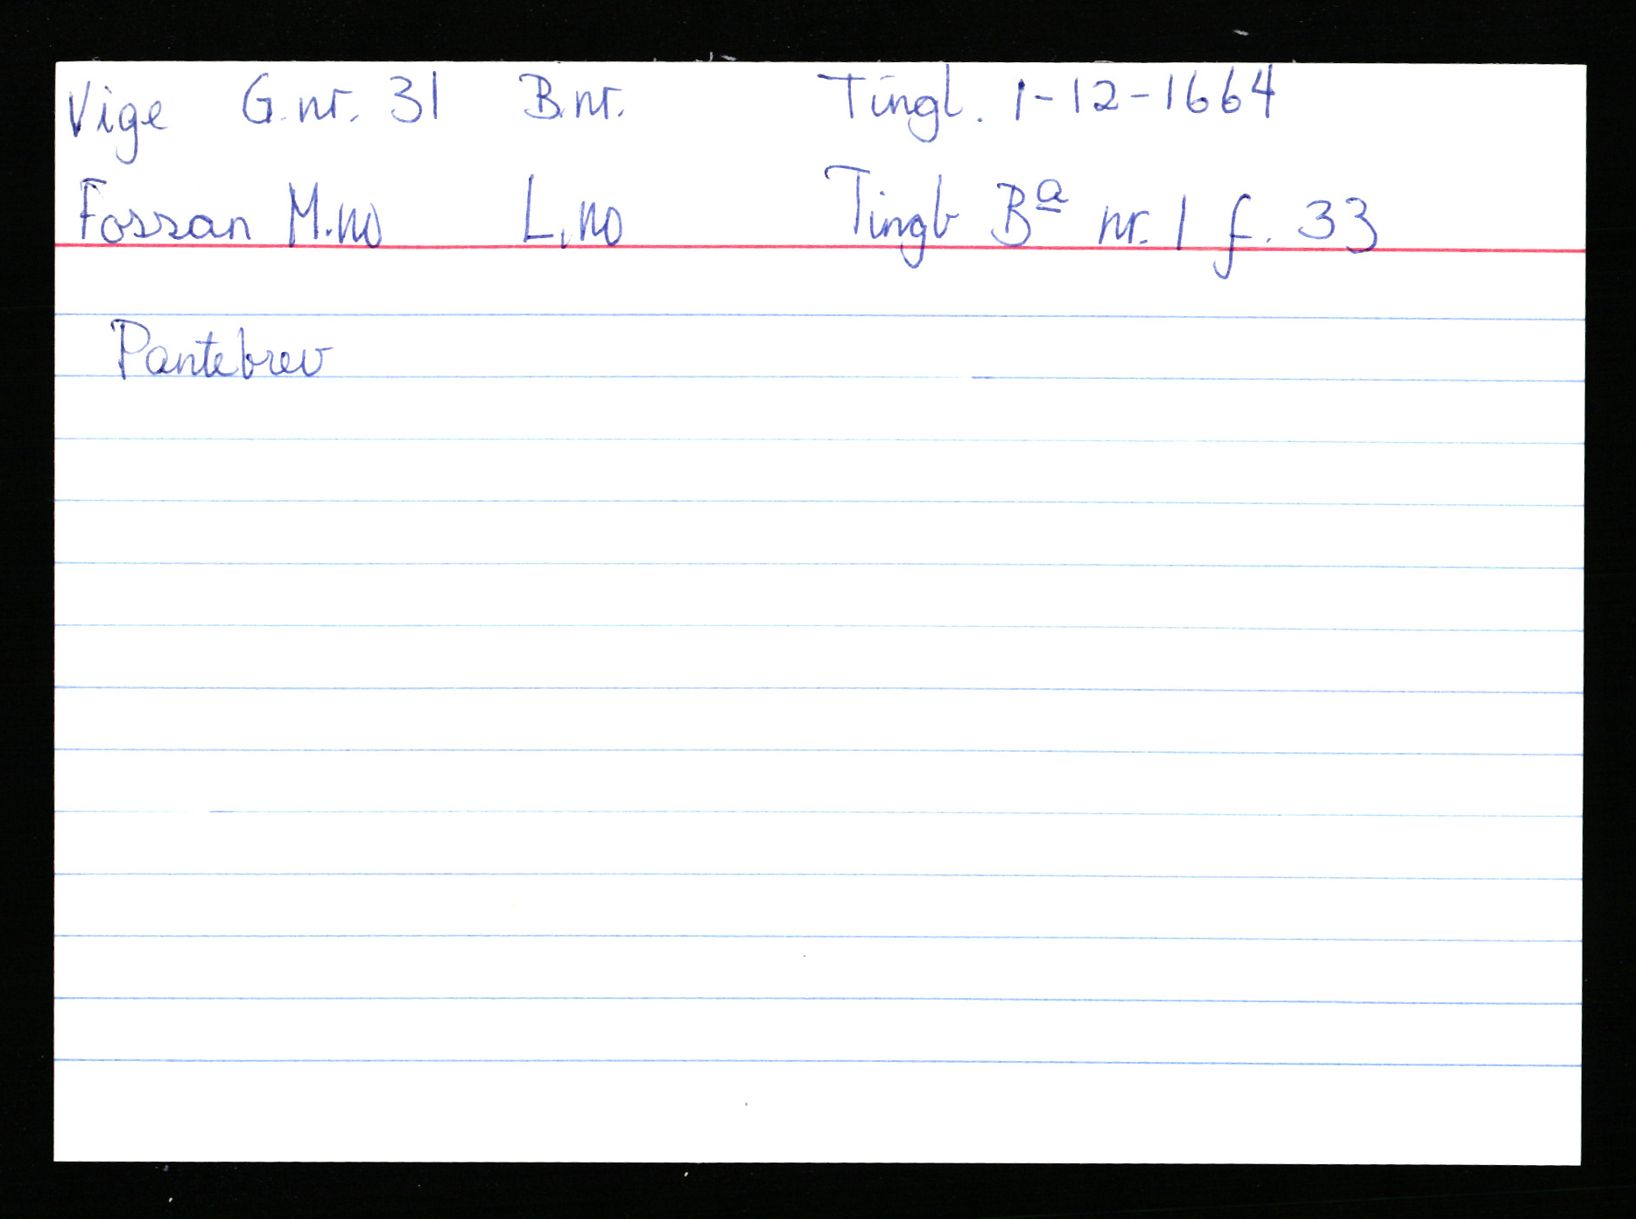 Vige G.nr. 31 B.nr. Tingl. 1-12-1664
Fossan M.no L.no Tingb Bª nr. 1 f. 33
Pantebrev